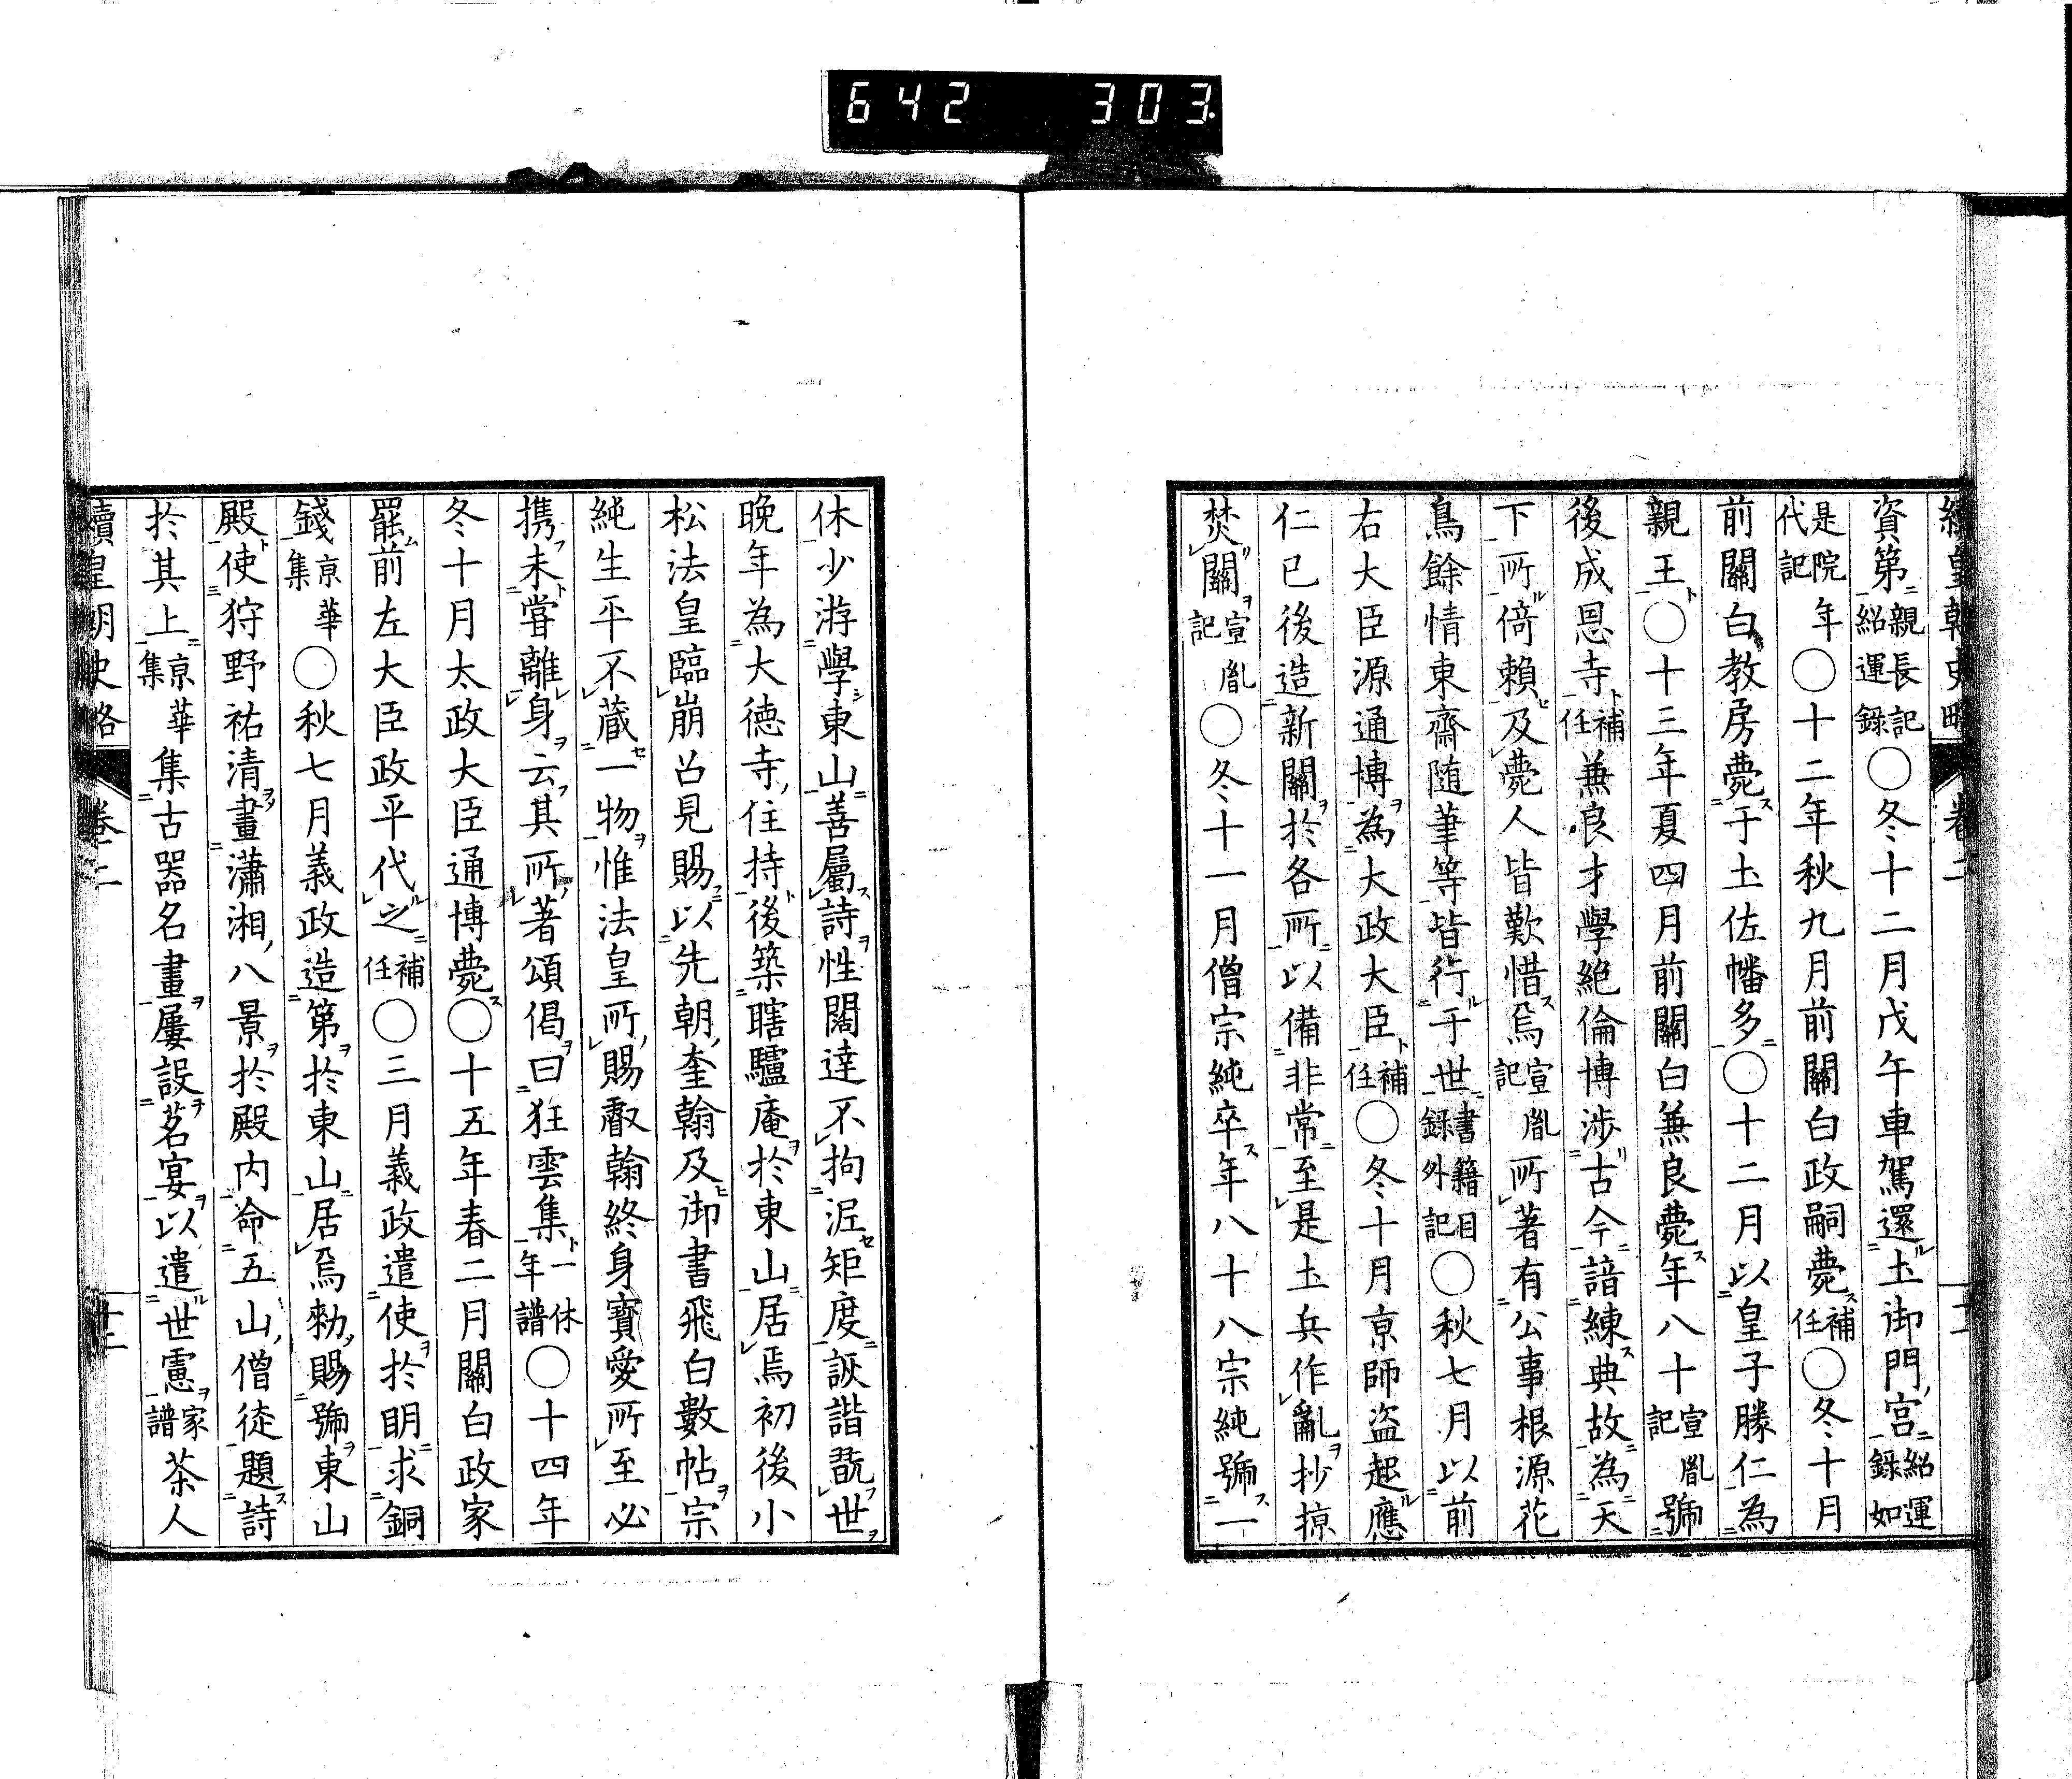 642 303
續皇朝史略 卷二 十二
資第親長記紹運錄○冬十二月戊午車駕還土御門宮紹運錄如
是院年代記○十二年秋九月前關白政嗣薨補任○冬十月
前關白教房薨于土佐幡多○十二月以皇子勝仁為
親王○十三年夏四月前關白兼良薨年八十宣胤記號
後成恩寺補任兼良才學絕倫博涉古今諳練典故為天
下所倚賴及薨人皆歎惜焉宣胤記所著有公事根源花
鳥餘情東齋随筆等皆行于世書籍目錄外記○秋七月以前
右大臣源通博為大政大臣補任○冬十月京師盜起應
仁已後造新關於各所以備非常至是土兵作亂抄掠
焚關宣胤記○冬十一月僧宗純卒年八十八宗純號一
休少游學東山善屬詩性闊達不拘泥矩度詼諧翫世
晚年為大德寺住持後築瞎驢庵於東山居焉初後小
松法皇臨崩召見賜以先朝奎翰及御書飛白數帖宗
純生平不藏一物惟法皇所賜叡翰終身寶愛所至必
携未甞離身云其所著頌偈曰狂雲集一休年譜○十四年
冬十月太政大臣通博薨○十五年春二月關白政家
罷前左大臣政平代之補任○三月義政遣使於明求銅
錢京華集○秋七月義政造第於東山居焉勑賜號東山
殿使狩野祐清畫瀟湘八景於殿内命五山僧徒題詩
於其上京華集集古器名畫屢設茗宴以遣世慮家譜茶人
續皇朝史略 卷二 十二